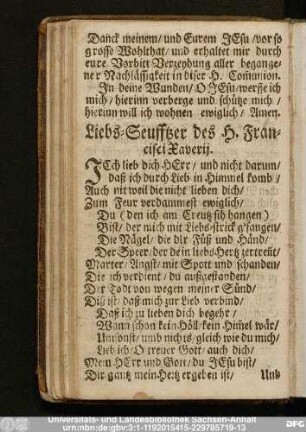 Danck meinem/ und Eurem JEsu/ vor so
grosse Wohlthat/ und erhaltet mir durch
eure Vorbitt Verzeyhung aller begange-
ner Nachlässigkeit in diser H. Communion.
Jn deine Wunden/ O JEsu/ werffe ich
mich/ hierinn verberge und schütze mich/
hierinn will ich wohnen ewiglich/ Amen.
Liebs-Seufftzer des H. Fran-
cisci Xaverij.
JCh lieb dich HErr/ und nicht darum/
daß ich durch Lieb in Himmel komb/
Auch nit weil die nicht lieben dich/
Zum Feur verdammest ewiglich/
Du (den ich am Creutz sih hangen)
Bist/ der mich mit Liebs-strick g'fangen/
Die Nägel/ die dir Füß und Händ/
Der Speer/ der dein liebs-Hertz zertreñt/
Marter/ Angst/ mit Spott und schanden/
Die ich verdient/ du außgestanden/
Der Todt von wegen meiner Sünd/
Diß ist/ daß mich zur Lieb verbind/
Daß ich zu lieben dich begehr/
Wann schon kein Höll/ kein Him̃el wär/
Umsonst/ umb nichts/ gleich wie du mich/
Lieb ich/ O treuer Gott/ auch dich/
Mein HErr und Gott/ du JEsu bist/
Dir gantz mein Hertz ergeben ist/
Und
Universitäts- und Landesbibliothek Sachsen-Anhalt
urn:nbn:de:gbv:3:1-1192015415-229785719-13